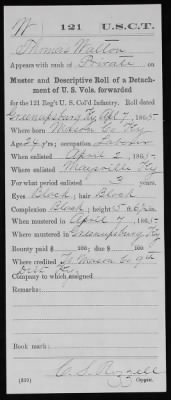 W | 121 | U.S.C.T.
Thomas Walton
Appears with rank of Private on
Muster and Descriptive Roll of a Detach-
ment of U. S. Vols. forwarded
for the 121 Reg't U. S. Col'd Infantry. Roll dated
Greenupsburg Ky Apl 7, 1865
Where born Mason Co Ky
Age 24 y'rs; occupation Laborer
When enlisted April 2, 1865
Where enlisted Maysville Ky
For what period enlisted 3 years.
Eyes Black; hair Black
Complexion Black; height 5 ft. 6 in.
When mustered in April 7, 1865
Where mustered in Greenupsburg Ky
Bounty paid $ 100; due $ 100
Where credited Mason Co 9th
Dist Ky
Company to which assigned
Remarks:
Book mark:
(339) Copyist.